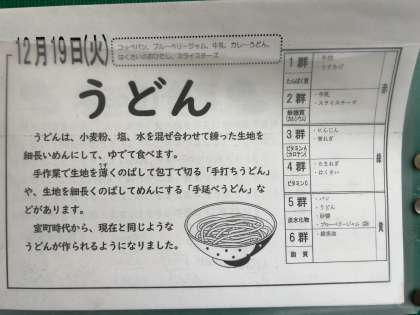 12月19日(火)
コッペパン、ブルーベリージャム、牛乳、カレーうどん、
はくさいのおひたし、スライスチーズ
うどん
うどんは、小麦粉、塩、水を混ぜ合わせて練った生地を
細長いめんにして、ゆでて食べます。
手作業で生地を薄くのばして包丁で切る「手打ちうどん」
や、生地を細長くのばしてめんにする「手延べうどん」な
どがあります。
室町時代から、現在と同じような
うどんが作られるようになりました。
1群
たんぱく質
2群
・牛乳
・スライスチーズ
無機質
(カルシウム)
3群
・にんじん
ビタミンA
(カロテン)
4群
・たまねぎ
・はくさい
ビタミンC
5群
・パン
・うどん
・砂糖
・ブルーベリージャム
炭水化物
6群
脂質
赤
緑
黄